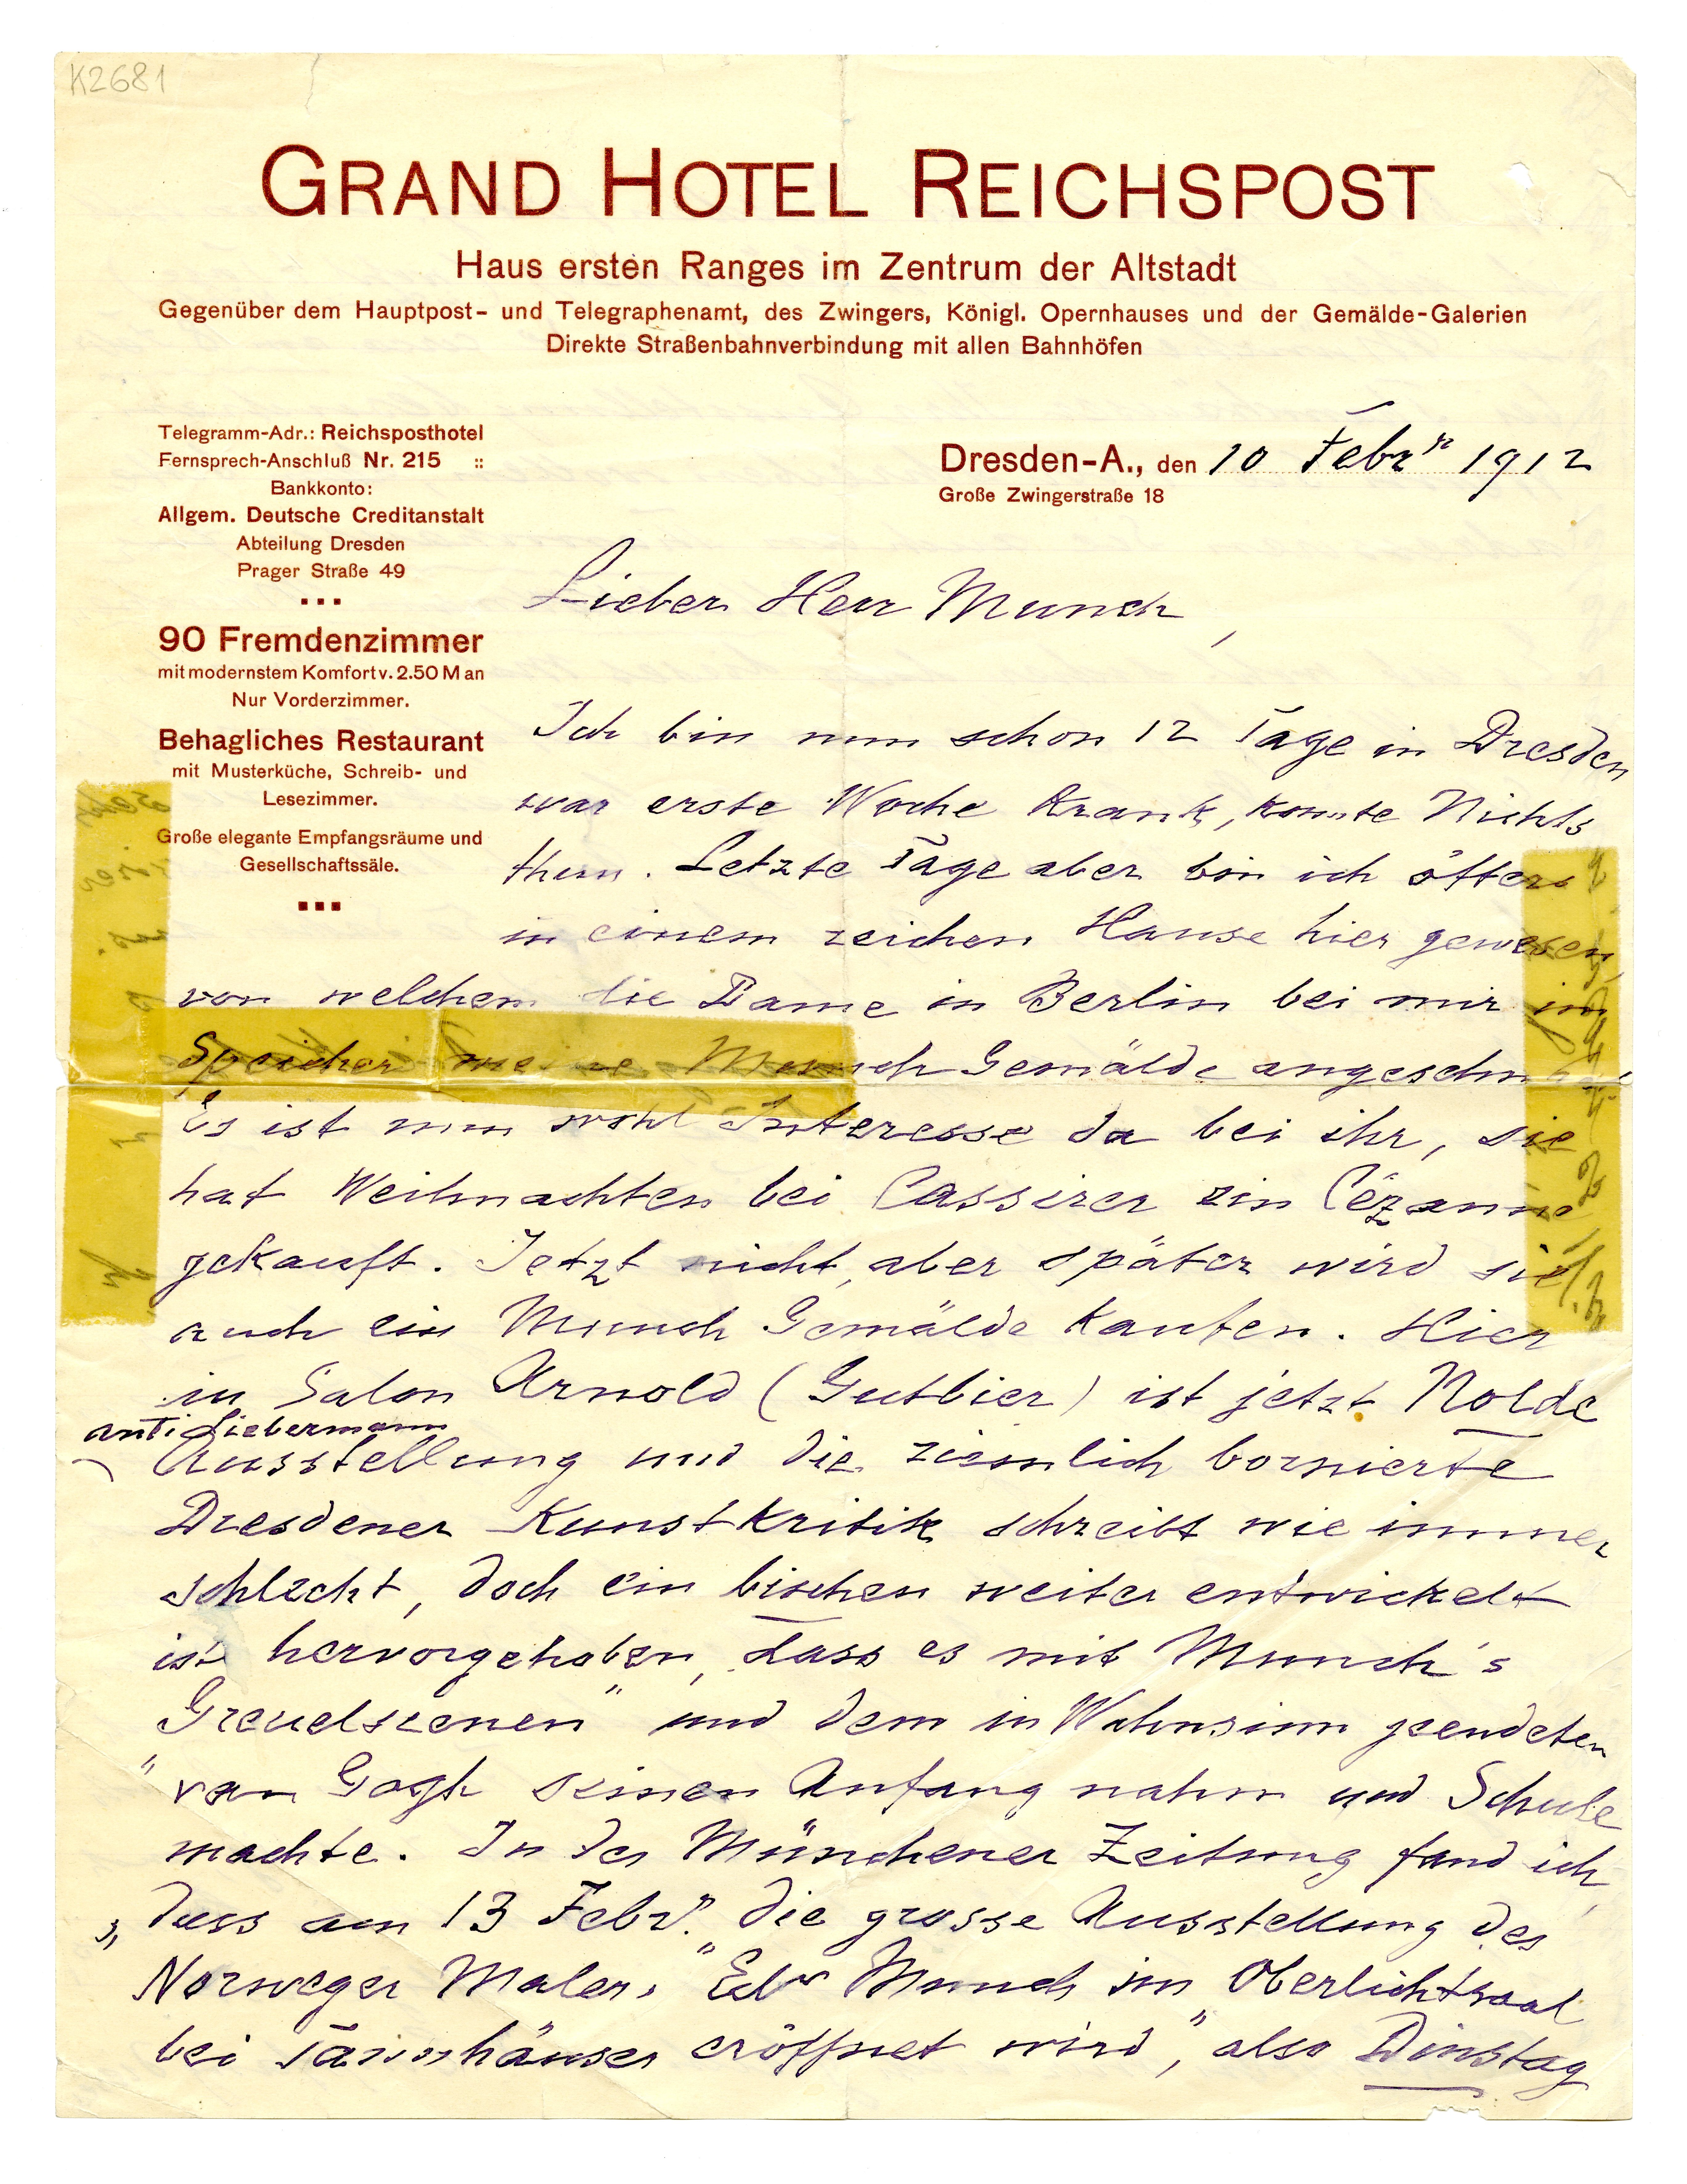 K2681
GRAND HOTEL REICHSPOST
Haus ersten Ranges im Zentrum der Altstadt
Gegenüber dem Hauptpost- und Telegraphenamt, des Zwingers, Königl. Opernhauses und der Gemälde-Galerien
Direkte Straßenbahnverbindung mit allen Bahnhöfen
Telegramm-Adr.: Reichsposthotel
Fernsprech-Anschluß Nr. 215 ::
Bankkonto:
Allgem. Deutsche Creditanstalt
Abteilung Dresden
Prager Straße 49
90 Fremdenzimmer
mit modernstem Komfort v. 2.50 M an
Nur Vorderzimmer.
Behagliches Restaurant
mit Musterküche, Schreib- und
Lesezimmer.
Große elegante Empfangsräume und
Gesellschaftssäle.
Dresden-A., den 10 Febr 1912
Große Zwingerstraße 18
Lieber Herr Munch,
Ich bin nun schon 12 Tage in Dresden
war erste Woche Krank, konnte Nichts
thun. Letzte Tage aber bin ich öfters
in einem reichen Hause hier gewesen,
von welchem die Dame in Berlin bei mir im
Speicher meine Munch Gemälde angeschaut
Es ist nun wohl Interesse da bei ihr, sie
hat Weihnachten bei Cassirer ein Cézanne
gekauft. Jetzt nicht, aber später wird sie
auch ein Munch Gemälde kaufen. Hier
in Salon Arnold (Gutbier) ist jetzt Nolde
anti Liebermann
Ausstellung und die ziemlich bornierte
Dresdener Kunstkritik schreibt wie immer
schlecht, doch ein bischen weiter entwickelt
ist hervorgehoben, dass es mit Munch's
Greuelszenen" und dem in Wahnsinn geendeten
"van Gogh seinen Anfang nahm und Schule
machte. In der Münchener Zeitung fand ich,
dass am 13 Febr. "die grosse Ausstellung des
Norweger Malers "Edv Munch im Oberlichtsaal
bei Tannhäuser eröffnet wird", also Dinstag